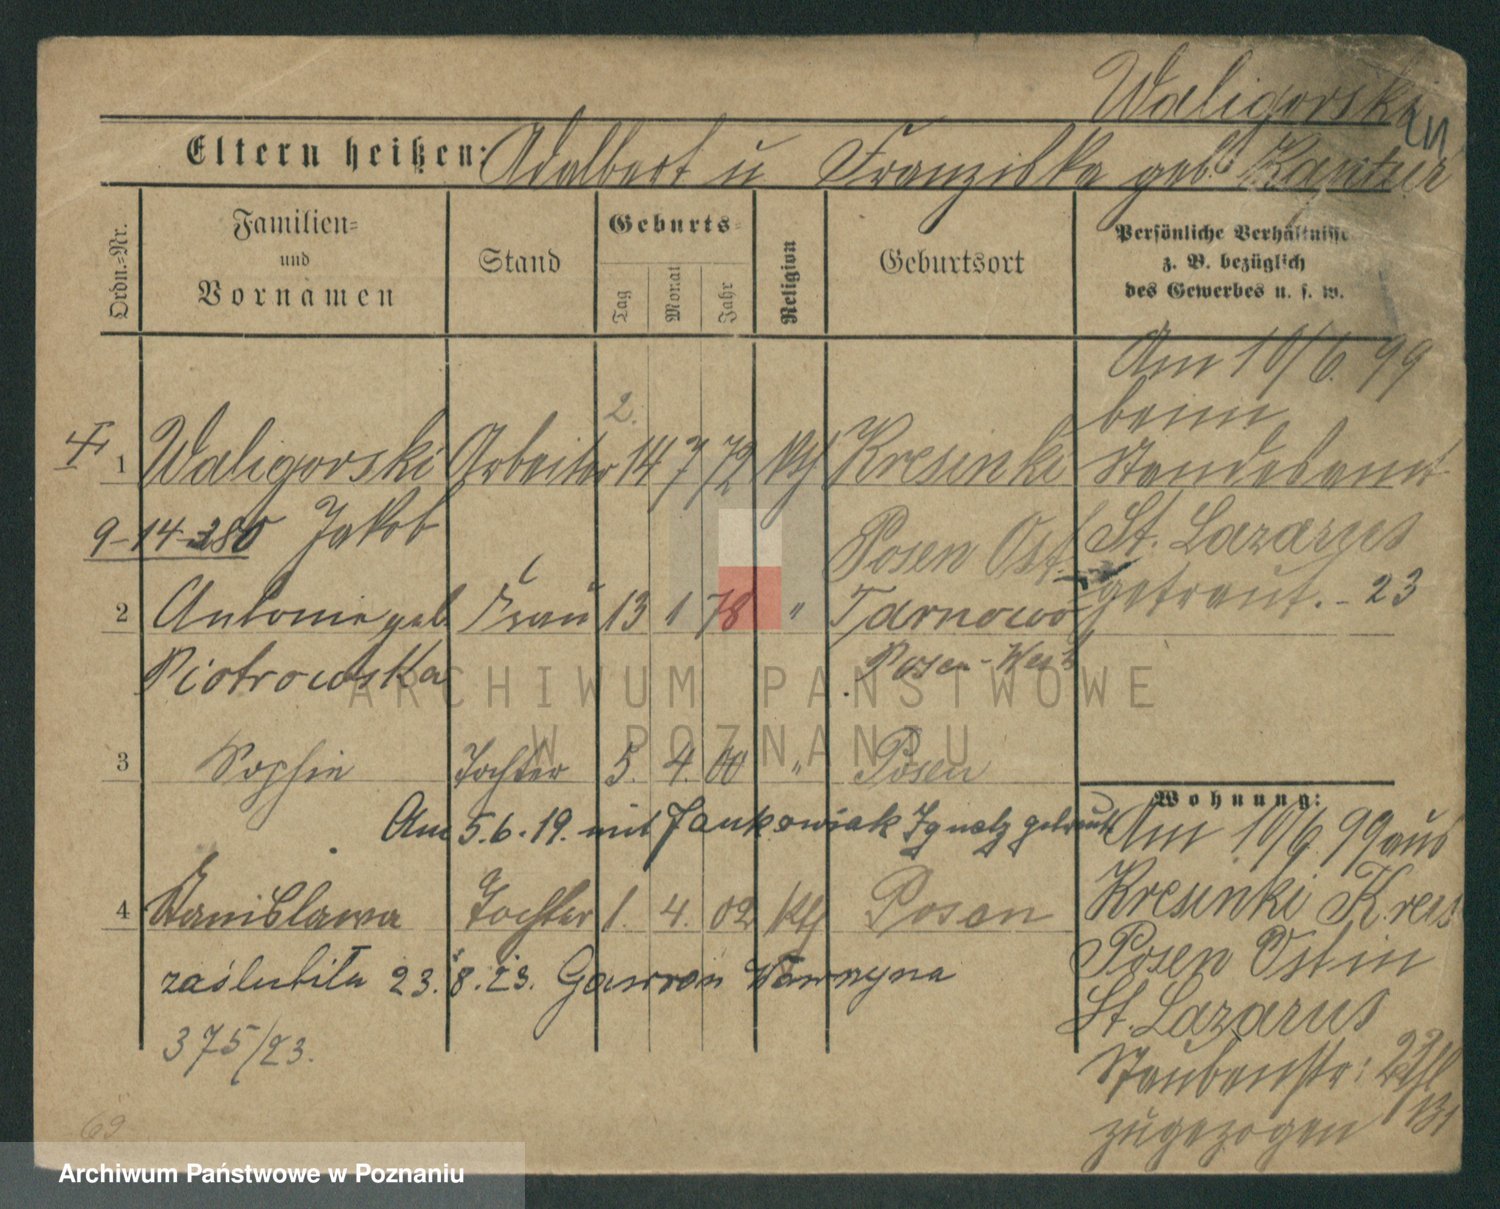 Waligorski
Eltern heißen: Adalbert u Franziska geb.
Ordn.-Nr.
Familien-
und
Vornamen
Stand
Geburts-
Tag
Monat
Jahr
Religion
Geburtsort
Persönliche Verhältnisse
z. B. bezüglich
des Gewerbes u. s. w.
2.
1 Waligorski Arbeiter 14 7 72 kth Kresinki
9-14-280 Jakob
Posen Ost
2 Antonie geb Frau 13 1 78 " Tarnowo
Piotrowska
Posen-West
3 Sophie Tochter 5. 4. 00 " Posen
Am 5.6.19. mit Jankowiak Ignatz getraut
4 Stanislawa Tochter 1. 4. 02 kth Posen
zaślubiła 23.8.23. Gawron Wawrzyna
375/23.
Am 10/6. 99
beim
Standesamt
St. Lazarus
getraut. - 23
Wohnung:
Am 10/6. 99 aus
Kresinki Kreis
Posen Ost in
St. Lazarus
zugezogen
69
ARCHIWUM PAŃSTWOWE
W POZNANIU
Archiwum Państwowe w Poznaniu